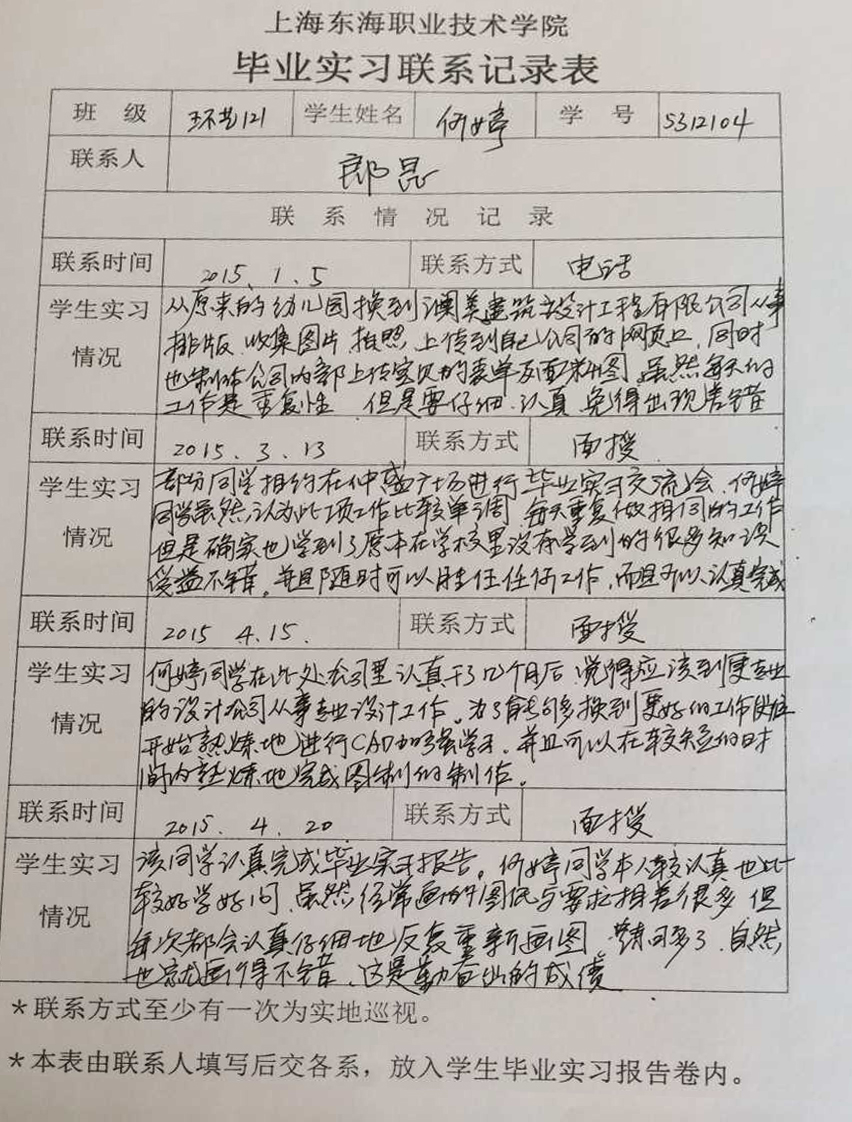 上海东海职业技术学院
毕业实习联系记录表
班 级 环艺121 学生姓名 何婷 学 号 S312104
联系人 郎昆
联 系 情 况 记 录
联系时间 2015、1、5 联系方式 电话
学生实习情况
从原来的幼儿园换到澳美建筑设计工程有限公司从事
排版、收集图片、拍照、上传到自己公司的网页上,同时
也制作公司内部上传室内的表单及面料图,虽然每天的
工作是重复性 但是要仔细、认真 免得出现差错
联系时间 2015.3.13 联系方式 面授
学生实习情况
部份同学相约在仲盛广场进行毕业实习交流会,何婷
同学虽然认为此项工作比较单调 每天重复做相同的工作
但是确实也学到了原本在学校里没有学到的很多知识
受益不错。并且随时可以胜任任何工作,而且可以认真完成
联系时间 2015 4.15. 联系方式 面授
学生实习情况
何婷同学在此处公司里认真干了几个月后,觉得应该到更专业
的设计公司从事专业设计工作。为了能够换到更好的工作
开始熟炼地进行CAD加强学习。并且可以在较短的时
间内熟炼地完成图纸的制作。
联系时间 2015. 4. 20 联系方式 面授
学生实习情况
该同学认真完成毕业实习报告。何婷同学本人较认真也比
较好学好问,虽然经常画的图纸与要求相差很多 但
每次都会认真仔细地反复重新画图 时间多了,自然,
也就画得不错,这是勤奋出的成绩
*联系方式至少有一次为实地巡视。
*本表由联系人填写后交各系,放入学生毕业实习报告卷内。